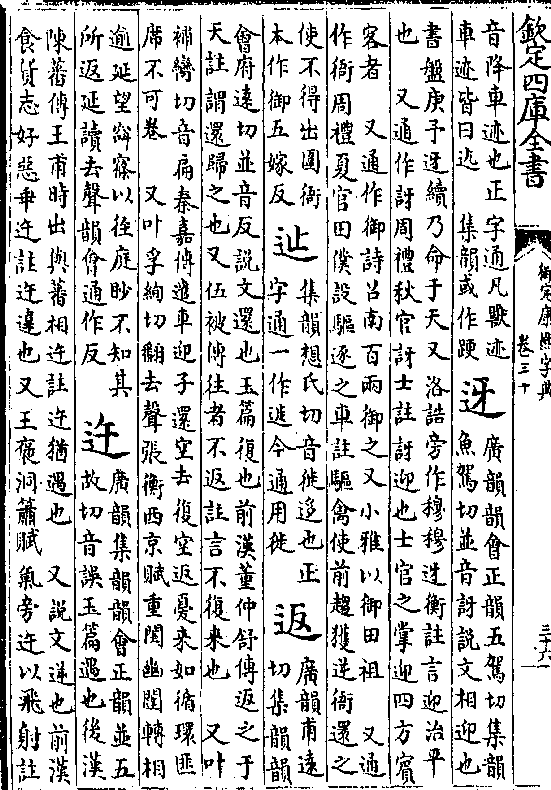 欽定四庫全書
御定康熙字典
卷三十
三十六
音降車迹也正字通凡獸迹
車迹皆曰迒　集韻或作踁
迓
廣韻韻會正韻五駕切集韻
魚駕切並音訝說文相迎也
書盤庚予迓續乃命于天又洛誥旁作穆穆迓衡註言迎治平
也　又通作訝周禮秋官訝士註訝迎也士官之掌迎四方賓
客者　又通作御詩召南百兩御之又小雅以御田祖　又通
作衙周禮夏官田僕設驅逐之車註驅禽使前趨獲逆衙還之
使不得出圍衙
本作御五嫁反
𨑭
集韻想氏切音徙迻也正
字通一作迣今通用徙
返
廣韻甫遠
切集韻韻
會府遠切並音反說文還也玉篇復也前漢董仲舒傳返之于
天註謂還歸之也又伍被傳往者不返註言不復來也　又叶
補巒切音扁秦嘉傳遣車迎子還空去復空返憂來如循環匪
席不可卷　又叶孚絢切翻去聲張衡西京賦重閨幽闥轉相
逾延望䆗窱以徑庭眇不知其
所返延讀去聲韻會通作反
迕
廣韻集韻韻會正韻並五
故切音誤玉篇遇也後漢
陳蕃傳王甫時出與蕃相迕註迕猶遇也　又說文逆也前漢
食貨志好惡乖迕註迕違也又王褒洞簫賦氣旁迕以飛射註